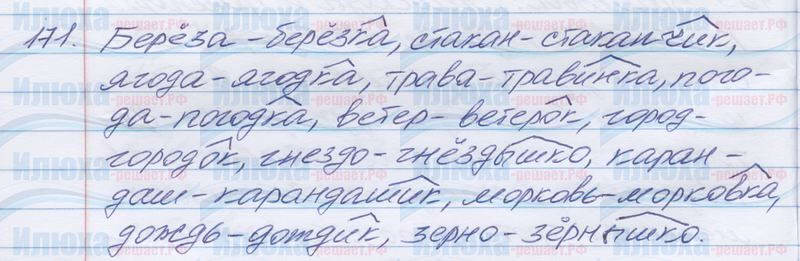 171. Берёза - берёзка, стакан - стаканчик,
ягода - ягодка, трава - травинка, пого-
да - погодка, ветер - ветерок, город -
городок, гнездо - гнёздышко, каран-
даш - карандашик, морковь - морковка,
дождь - дождик, зерно - зёрнышко.